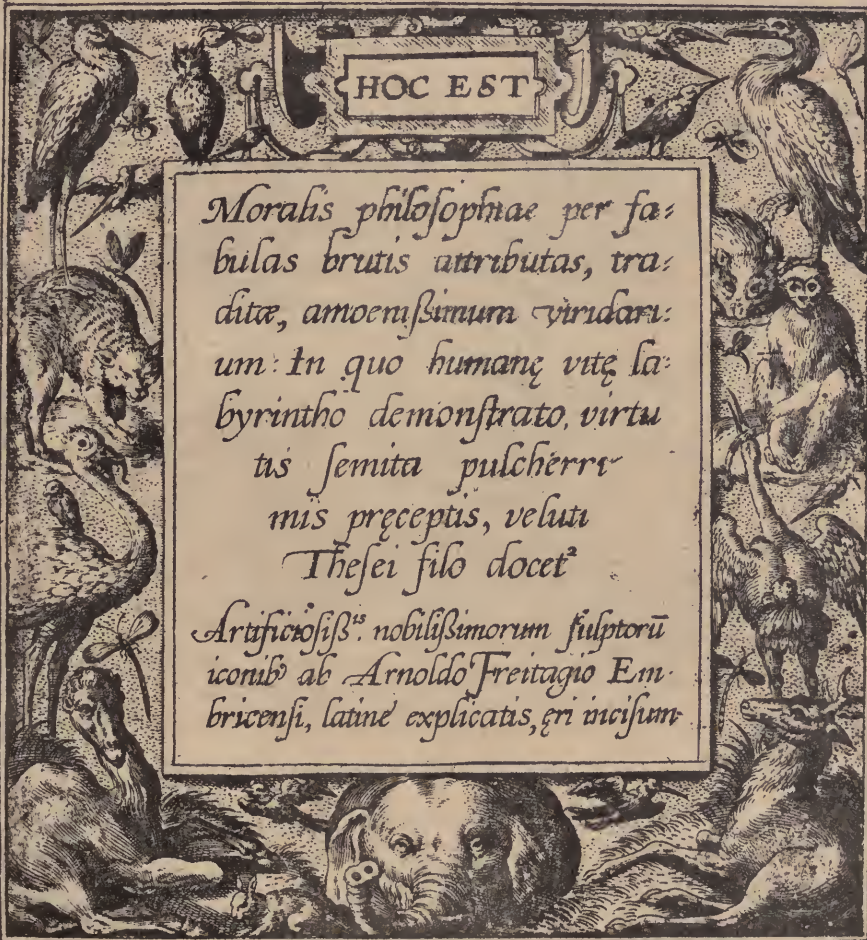 HOC EST
Moralis philoſophiae per fa:
bulas brutis attributas, tra:
ditæ, amoeniſsimum viridari:
um: In quo humanę vitę la:
byrintho demonſtrato, virtu
tis ſemita pulcherri
mis pręceptis, veluti
Theſei filo docetᷣ
Artificioſiſsⁱˢ. nobiliſsimorum ſculptorū
iconibꝰ ab Arnoldo Freitagio Em-
bricenſi, latine explicatis, ęri inciſum